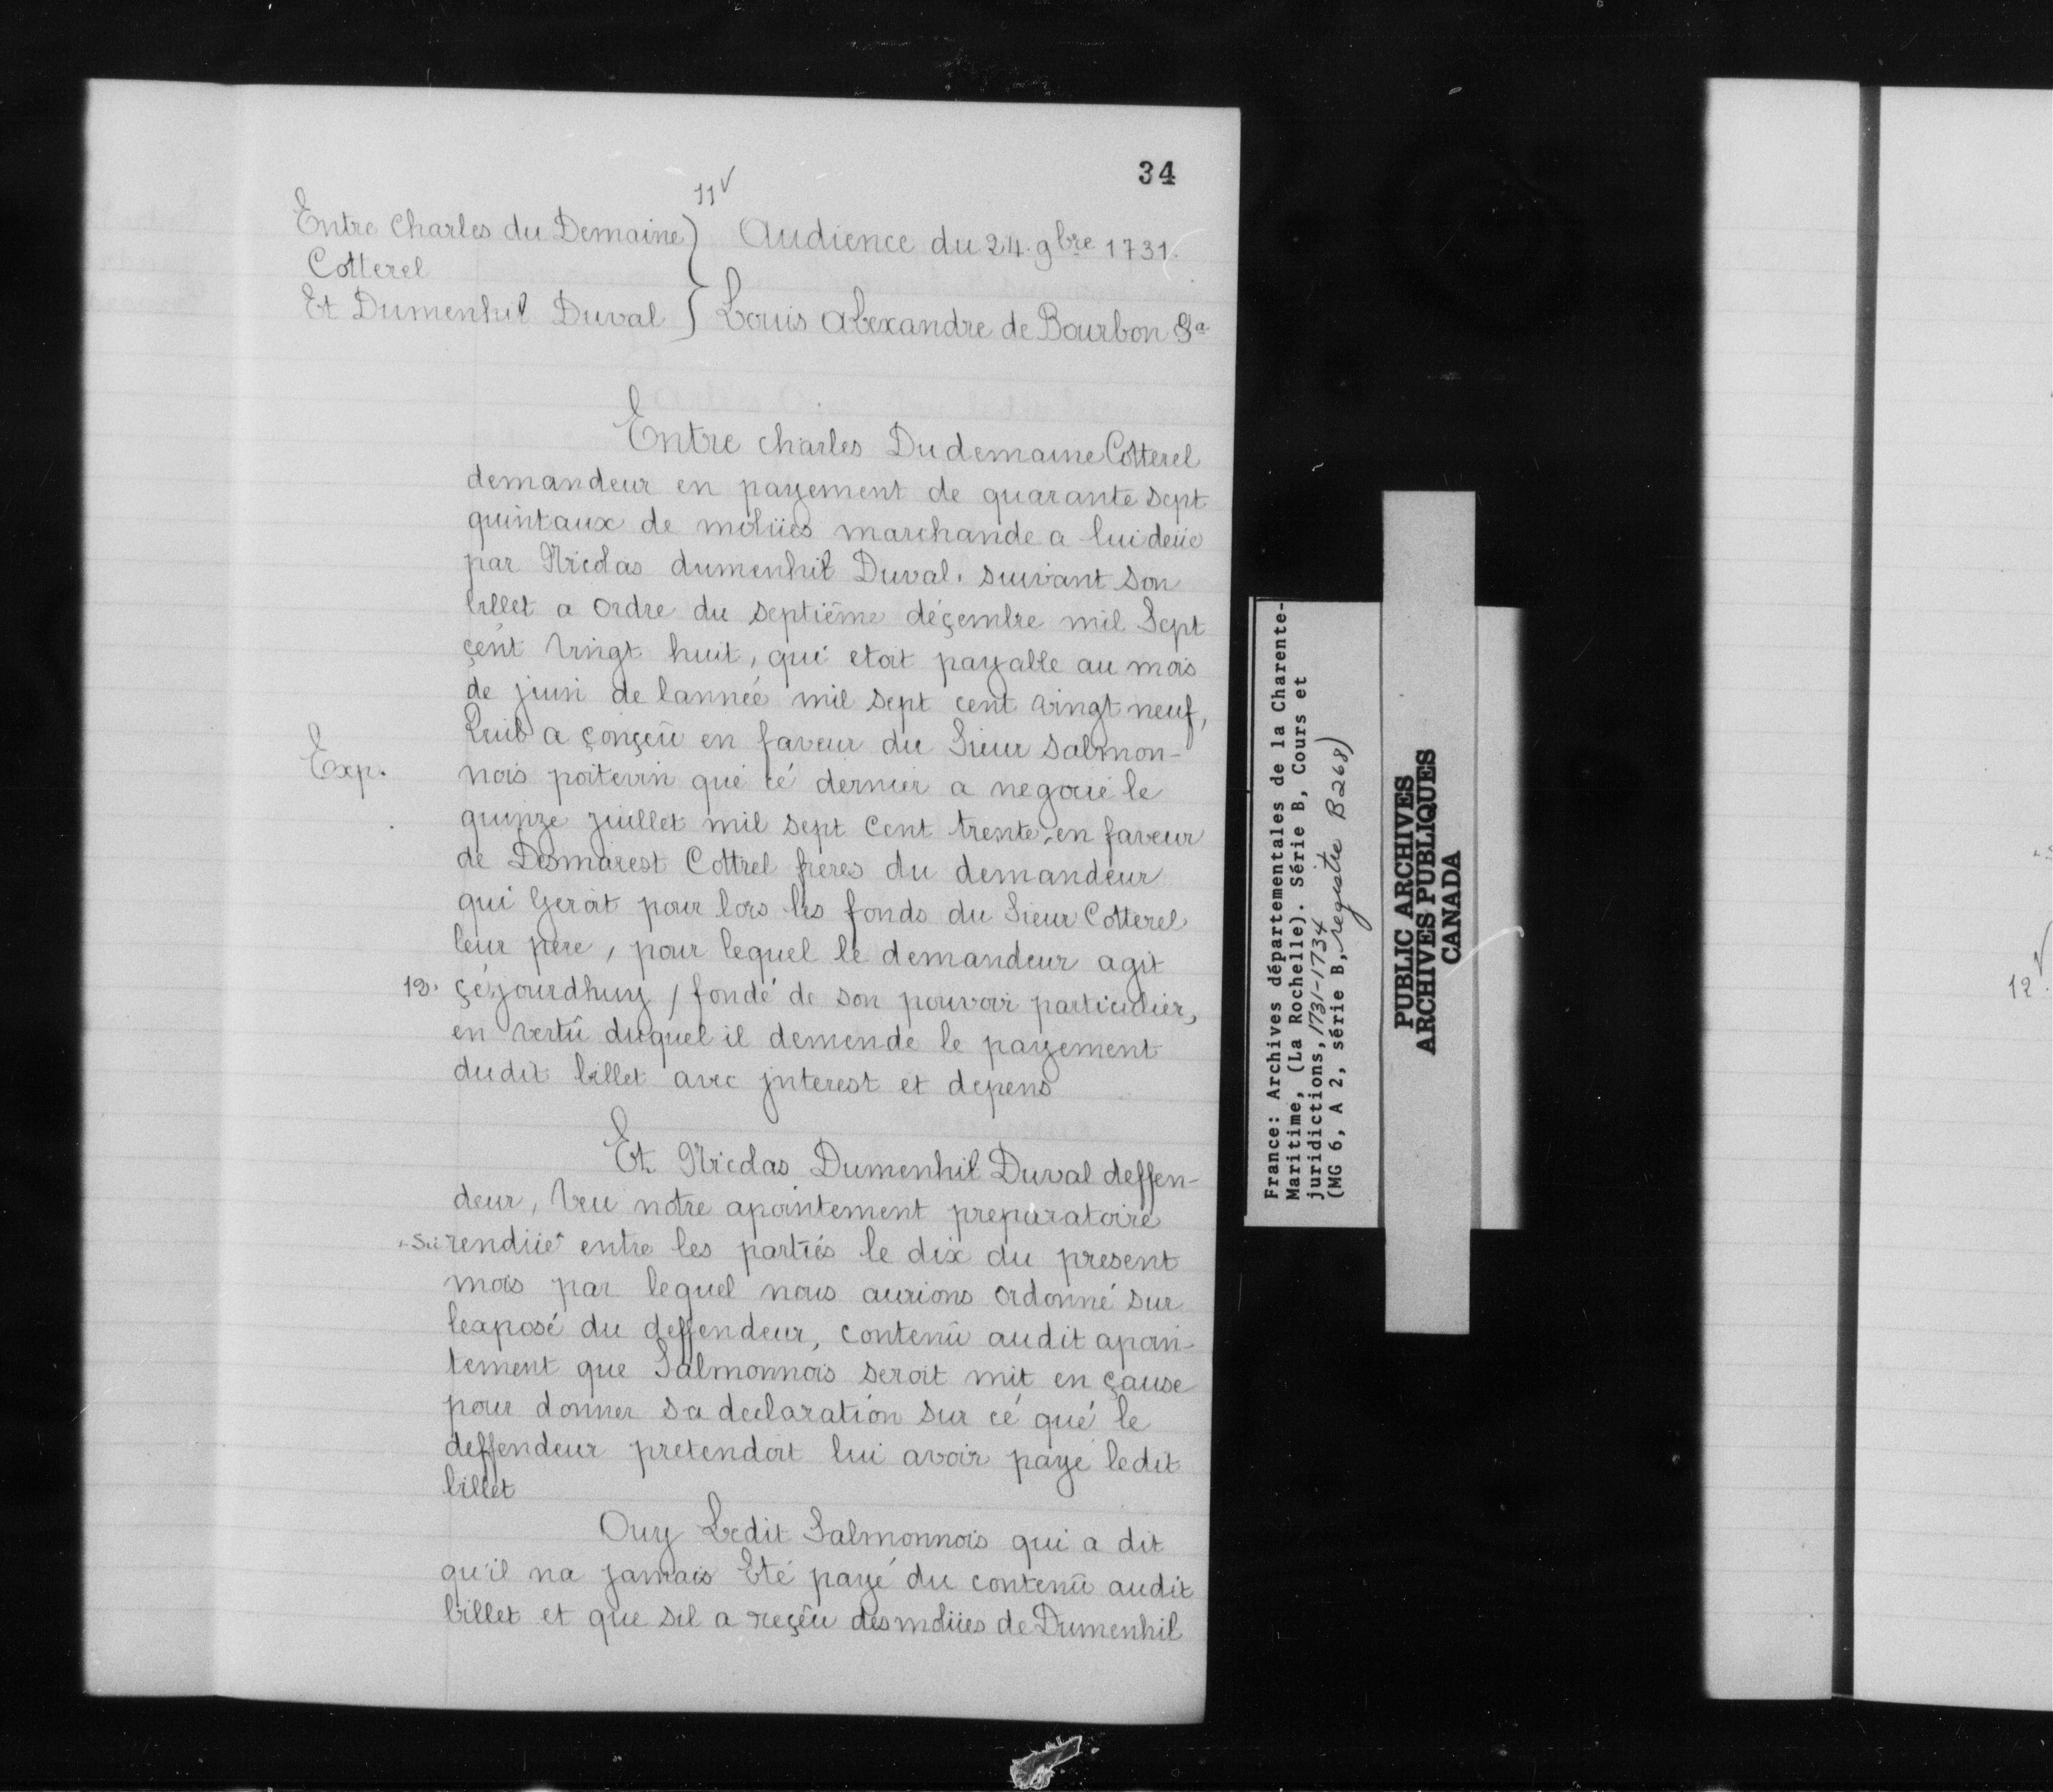 34
11v
Entre Charles du Demaine
Cotterel
Et Dumenhil Duval
Audience du 24. 9bre 1731.
Louis Alexandre de Bourbon &a
Entre charles Dudemaine Cotterel
demandeur en payement de quarante sept
quintaux de moliies marchande a lui deüe
par Nicolas dumenhil Duval. suivant son
billet a Ordre du septiême déçembre mil Sept
çent Vingt huit, qui etoit payable au mois
de juin de lanneé mil sept cent vingt neuf,
Quil a çonçeû en faveur du Sieur Salmon-
Exp.
nois poitevin que cé dernier a negocié le
quinze juillet mil sept Cent trente, en faveur
de Desmarest Cottrel freres du demandeur
qui Geroit pour lors les fonds du Sieur Cotterel
leur pere, pour lequel le demandeur agit
12.
çéjourdhuy, fondé de son pouvoir particulier,
en vertû duquel il demende le payement
dudit billet avec jnterest et depens
Et Nicolas Dumenhil Duval deffen-
deur, Veu notre apointement preparatoire
rendüe entre les partiés le dix du present
mois par lequel nous aurions Ordonné sur
lexposé du deffendeur, contenû audit apoin-
tement que Salmonnois seroit mit en çause
pour donner sa declaration sur cé qué le
deffendeur pretendoit lui avoir payé ledit
billet
Ouy Ledit Salmonnois qui a dit
qu'il na jamais Eté payé du contenû audit
billet et que sil a reçêu des moliies de Dumenhil
France: Archives départementales de la Charente-
Maritime, (La Rochelle). Série B, Cours et
juridictions, 1731-1734
(MG 6, A 2, série B, registre B268)
PUBLIC ARCHIVES
ARCHIVES PUBLIQUES
CANADA
12v